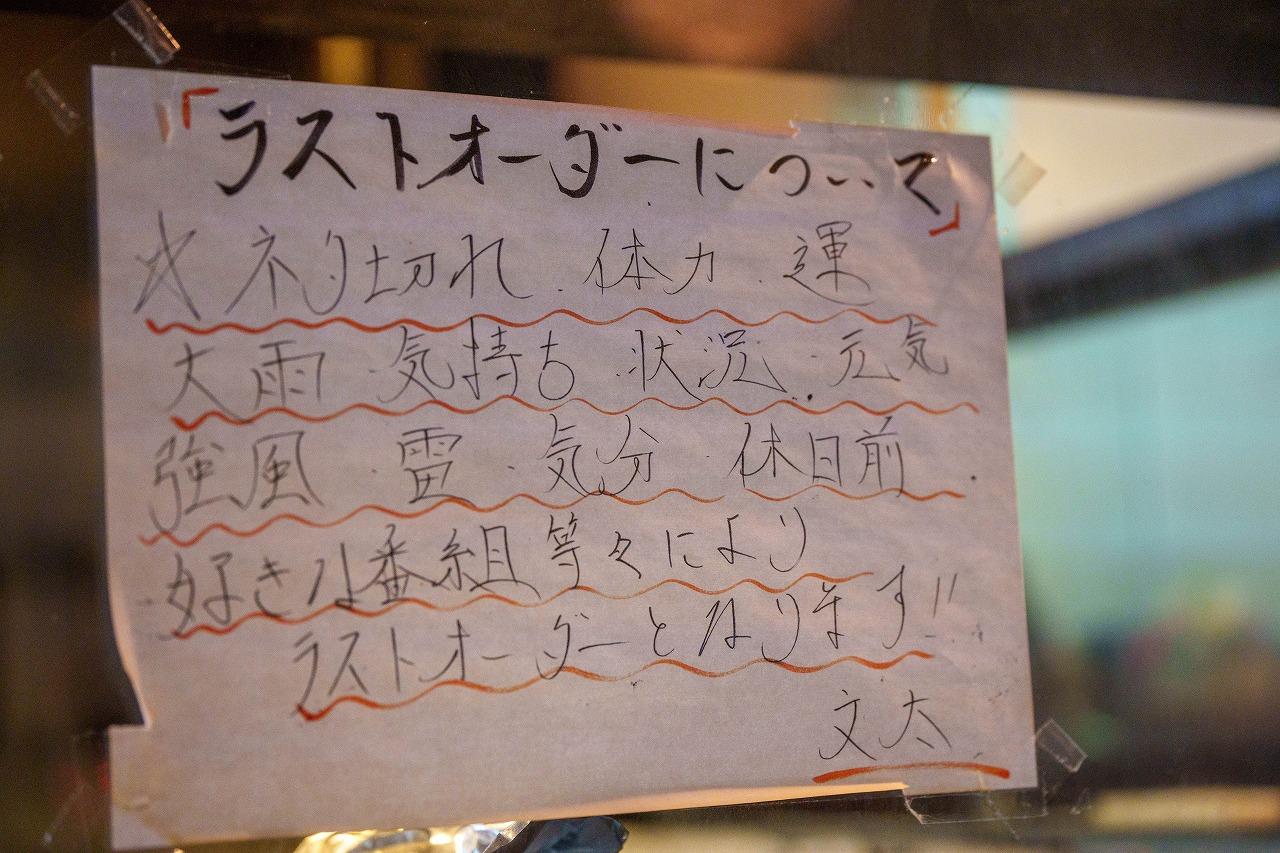 「ラストオーダーについて」
ネタ切れ．体力．運
大雨・気持ち・状況・元気
強風・雷・気分・休日前・
好きな番組等々により
ラストオーダーとなります!!
文太